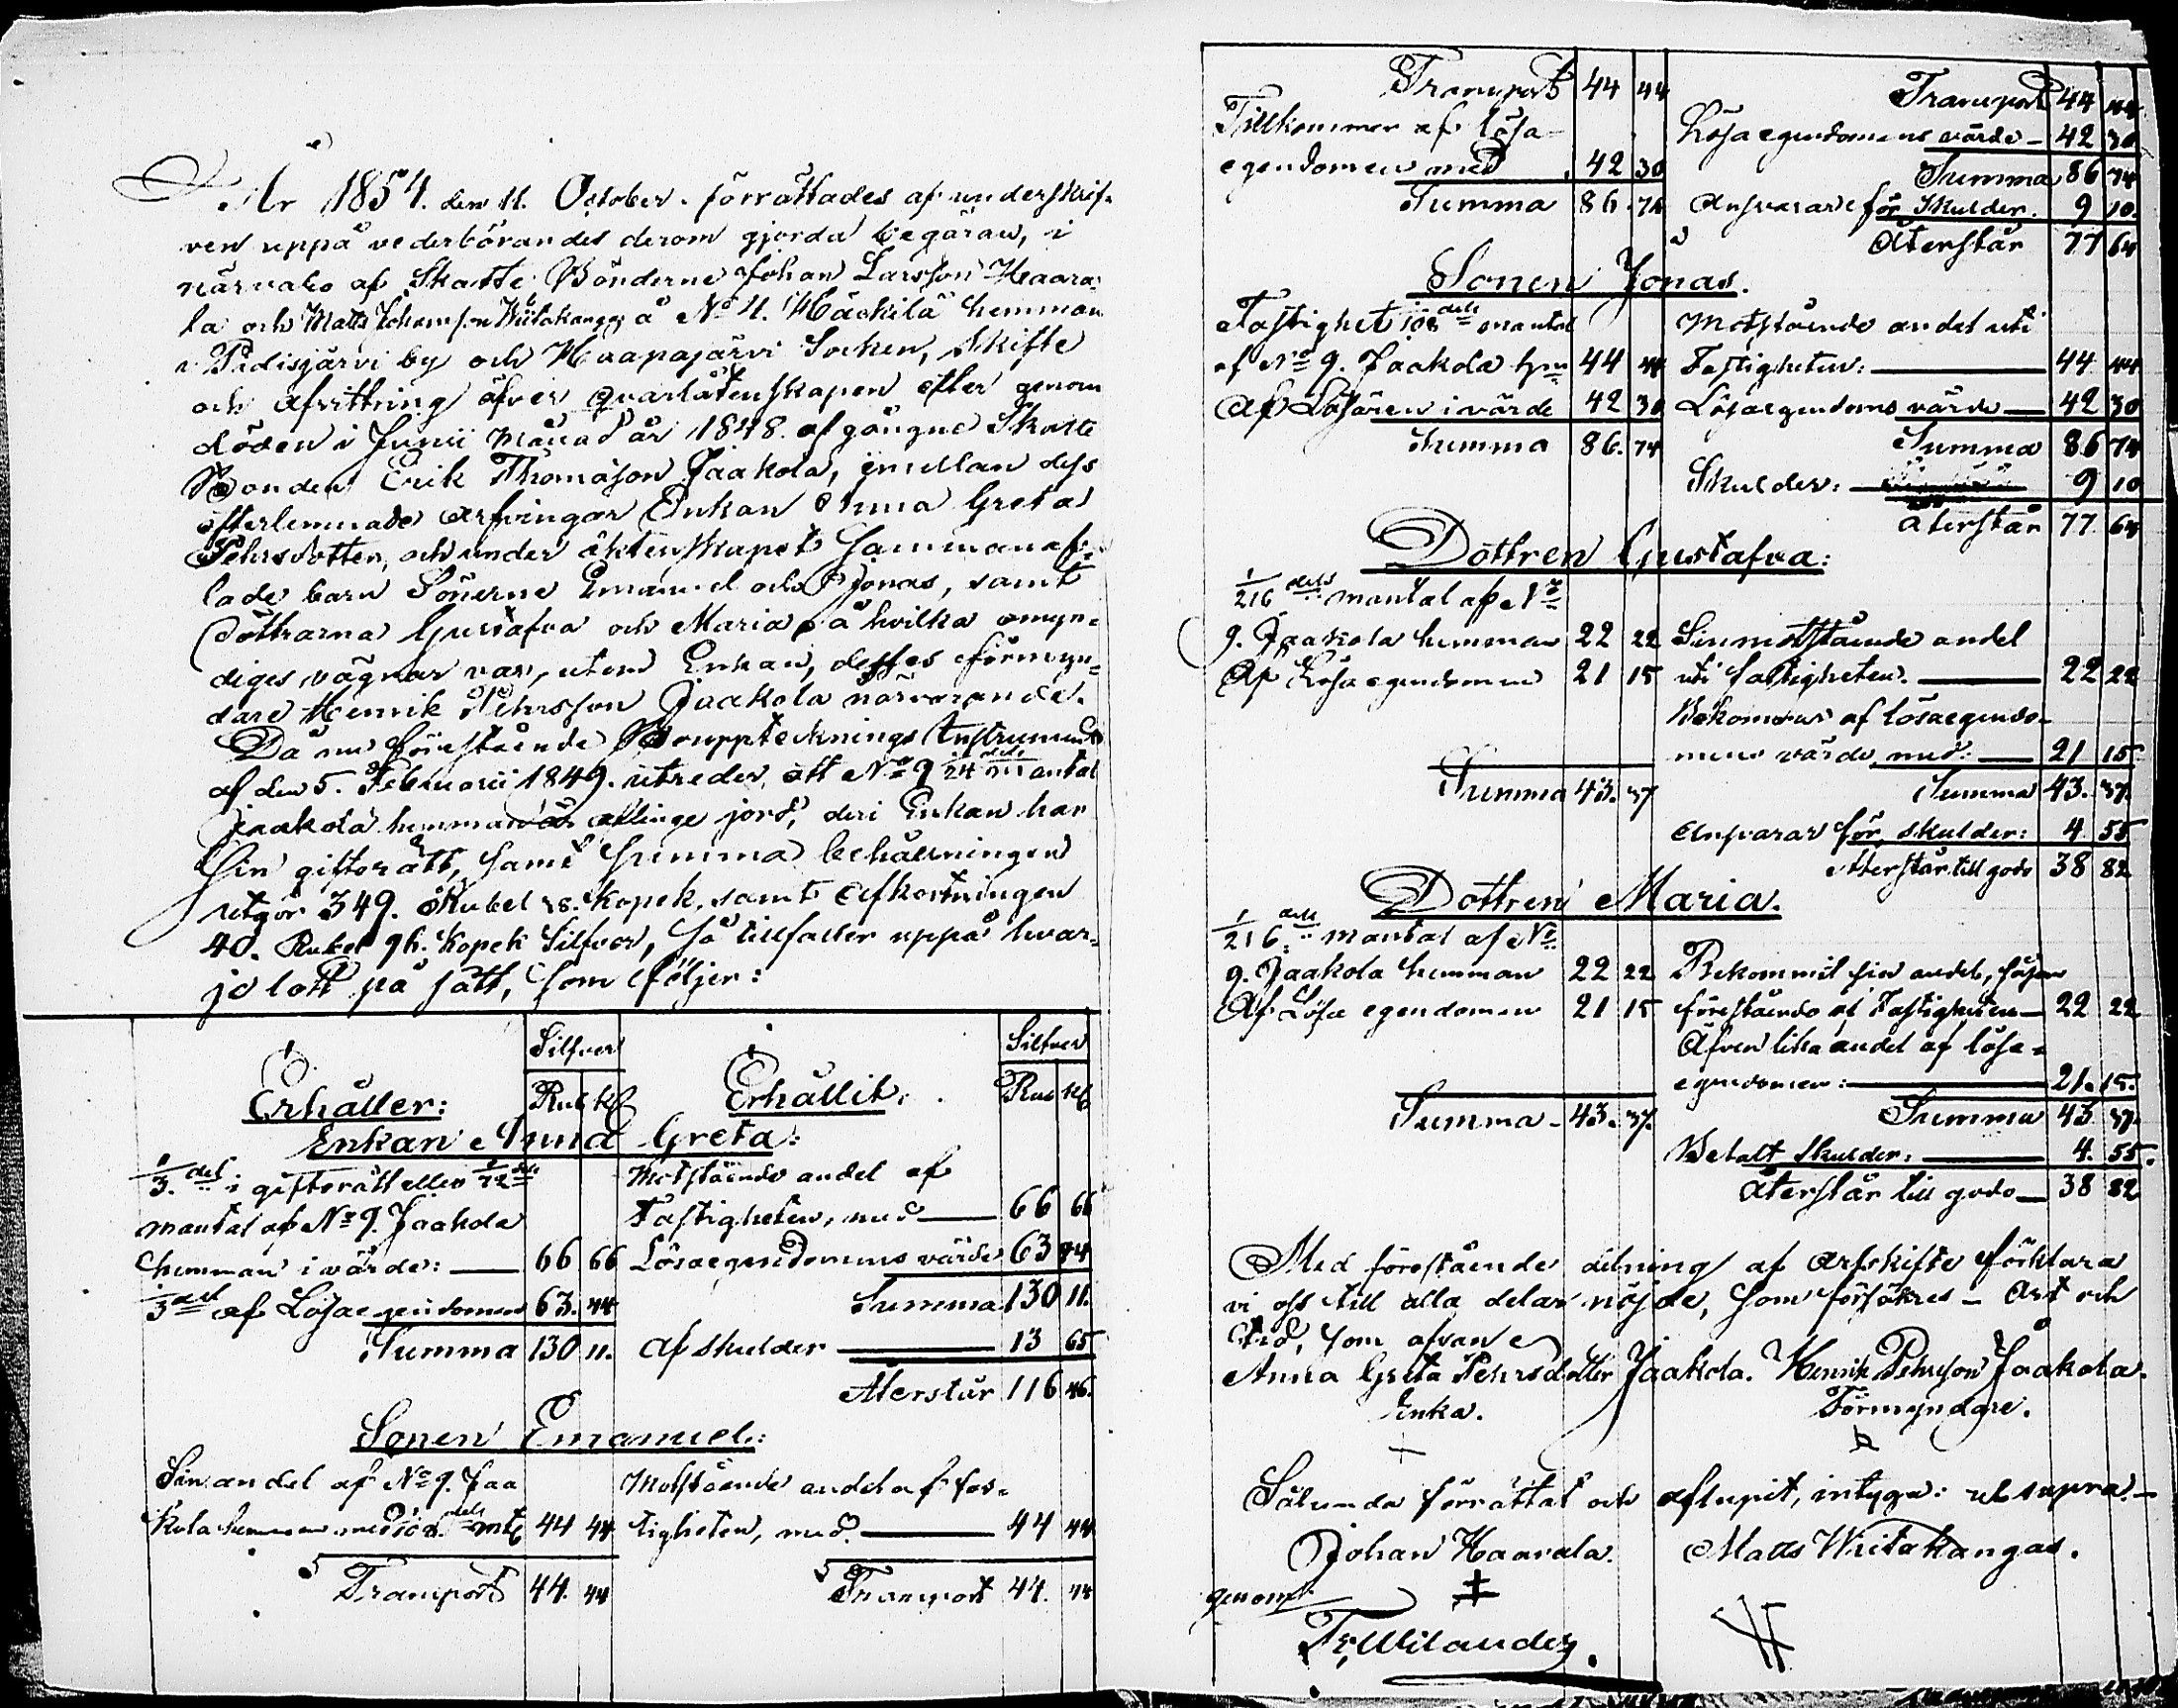 År 1854. den 11. October. förrättades af underskrif-
ven uppå vederbörandes derom gjorda begäran, i
närvaro af Skatte Bönderne Johan Larsson Haara-
la och Matts Johansson Wiitakangas å No 4. Mäckilä hemman
i Pidisjärvi by och Haapajärvi Socken, Skifte
och afvittring öfver qvarlåtenskapen efter genom
döden i Junii månad år 1848. afgångne Skatte
Bonden Erik Thomasson Jaakola, emellan dess
efterlemnade arfvingar Enkan Anna Greta
Pehrsdotter, och under äktenskapet sammanaf-
lade barn Sönerne Emanuel och Jonas, samt
Döttrarna Gustafva och Maria, å hvilka omyn-
diges vägnar var, utom Enkan, desses förmyn-
dare Henrik Pehrsson Jaakola närvarande.
Då nu förestående Bouppteknings Instrument
af den 5. Februarii 1849. utreder, att No 9 1/24 dels mantal
Jaakola hemman är aflinge jord, deri Enkan har
sin giftorätt, samt summa behållningen
utgör 349. Rubel 18. Kopek, samt afkortningen
40. Rubel 96. Kopek Silfver, så tillfaller uppå hvar-
je lott på sätt, som följer:
Silfver Silfver
Erhåller: Rub kp Erhållit. Rub kp
Enkan Anna Greta:
1/3. del i giftorätt eller 1/72 dels Motstående andel af
mantal af No 9. Jaakola Fastigheten, med 66 66
hemman i värde: 66 66 Lösaegendomens värde 63 44
1/3 del af Lösaegendomen 63. 44 Summa 130 11.
Summa 130 11. Af skulder 13 65
Återstår 116 46.
Sonen Emanuel:
Sin andel af No 9. Jaa Motstående andel af fas-
kola hemman med 108. dels mtl 44 44 tigheten, med 44 44
Transport 44. 44 Transport 44. 44
Transport 44 44 Transport 44 44
Tillkommer af lösa Lösaegendomens värde - 42 30
egendomen med 42 30 Summa 86 74
Summa 86. 74 Ansvarar för Skulder. 9 10.
Återstår 77 64
Sonen Jonas.
Fastighet 108 dels mantal Motstående andel uti
af No 9. Jaakola hmn 44 44 Fastigheten: 44 44
Af Lösören i värde 42 30 Lösaegendoms värde 42 30
Summa 86. 74 Summa 86 74
Skulder: 9 10
återstår 77 64
Dottren Gustafva:
1/216 dels mantal af No
9. Jaakola hemman 22 22 Sin motstående andel
Af Lösaegendomen 21 15 uti fastigheten. 22 22
Bekommer af lösaegendo-
mens värde med: 21 15
Summa 43. 37 Summa 43. 37.
Ansvarar för skulder: 4 55
Återstår till godo 38 82
Dottren Maria.
1/216. dels mantal af No
9. Jaakola hemman 22 22 Bekommit sin andel, såsom
Af Lösa egendomen 21 15 förestående af Fastigheten 22 22
Äfven lika andel af lösa-
egendomen: 21. 15.
Summa - 43. 37. Summa 43 37.
Betalt skulder: 4. 55.
Återstår till godo 38 82
Med förestående delning af arfskifte förklara
vi oss till alla delar nöjde, som försäkres - Ort och
tid, som ofvan
Anna Greta Pehrsdotter Jaakola. Henrik Pehrsson Jaakola.
Enka. Förmyndare.
Sålunda förrättat och aflupit, intyga: ut supra. -
Johan Haarala. Matts Wiitakangas.
genom
Fr. Wilander.